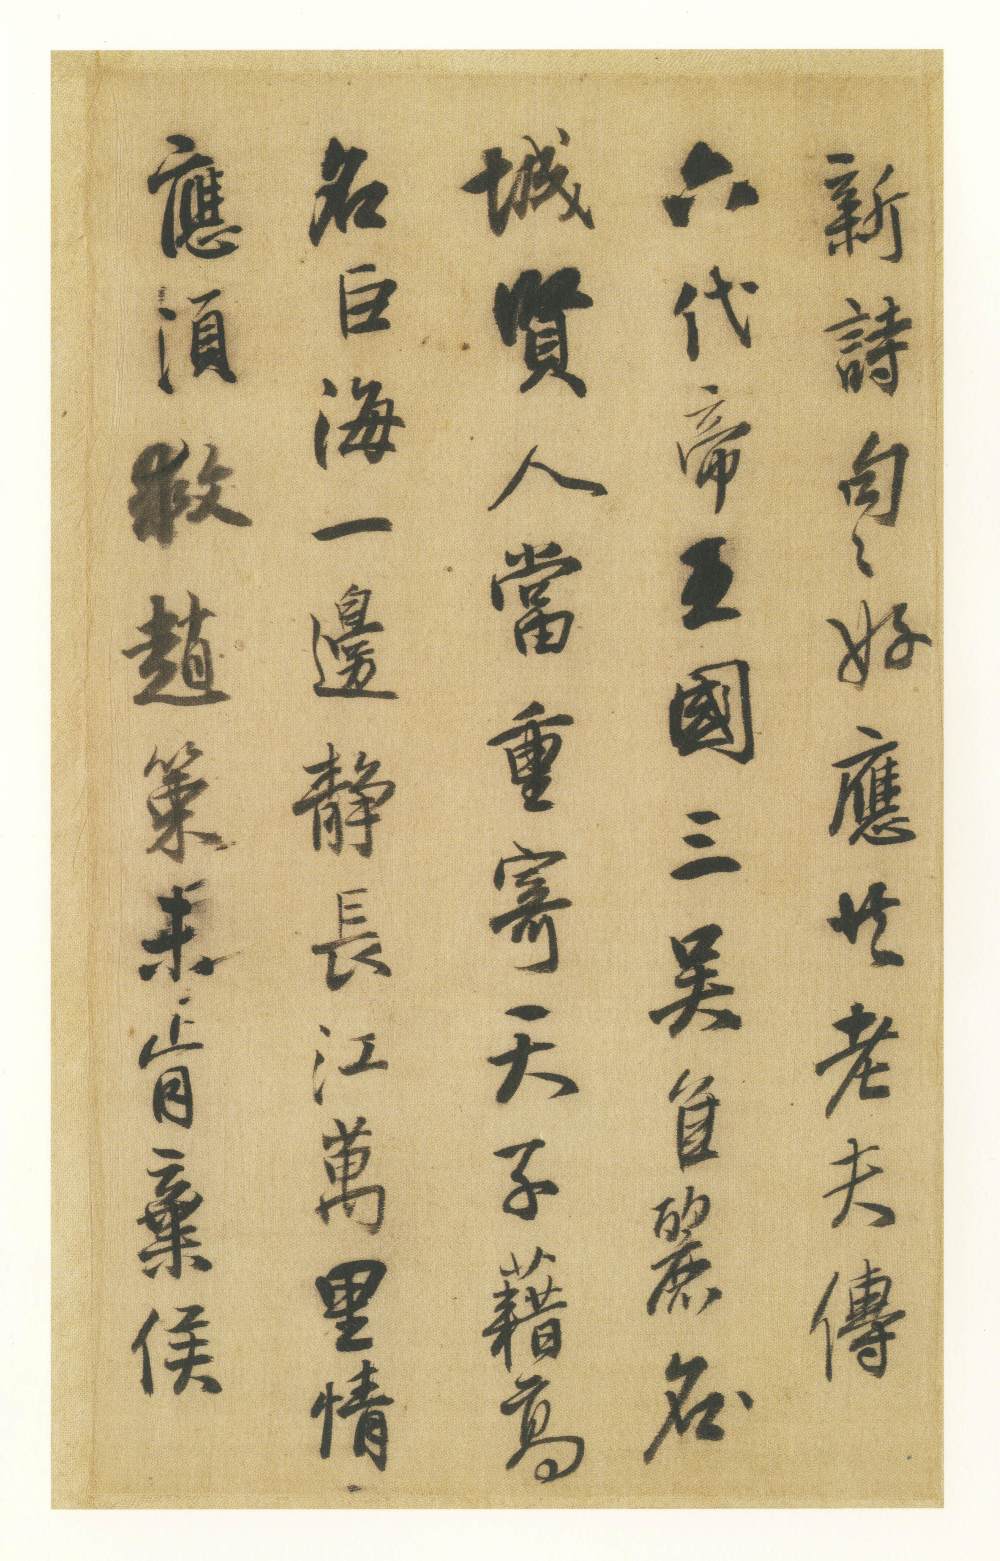 新詩句々好應共老夫傳
六代帝王國三吳佳麗名
城賢人當重寄天子藉高
名巨海一邊靜長江萬里情
應須救趙策未肯棄侯